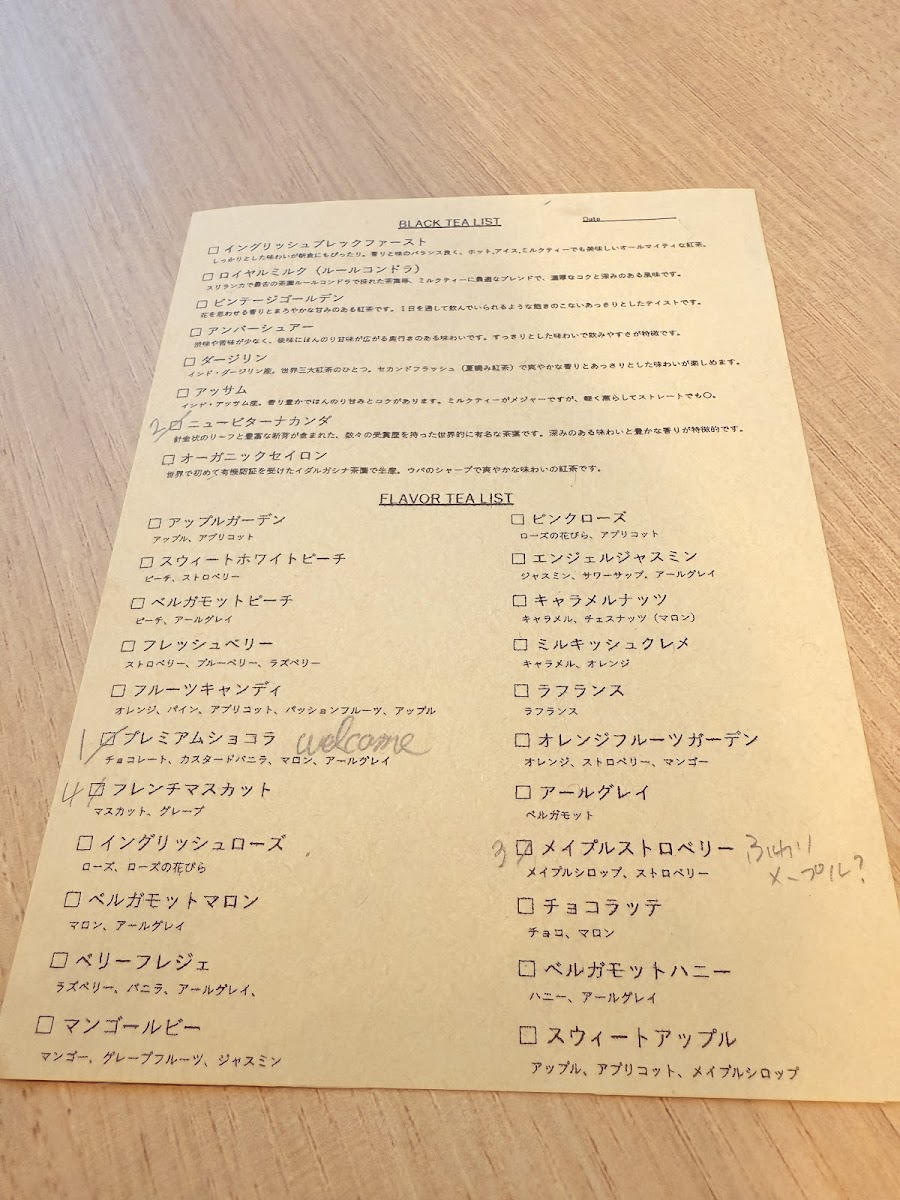 BLACK TEA LIST
Date
□ イングリッシュブレックファースト
しっかりとした味わいが朝食にもぴったり。香りと味のバランス良く、ホット,アイス,ミルクティーでも美味しいオールマイティな紅茶。
□ ロイヤルミルク（ルールコンドラ）
スリランカで最古の茶園ルールコンドラで採れた茶葉棒、ミルクティーに最適なブレンドで、濃厚なコクと深みのある風味です。
□ ビンテージゴールデン
花を思わせる香りとまろやかな甘みのある紅茶です。1日を通して飲んでいられるような飽きのこないあっさりとしたテイストです。
□ アンバーシュアー
渋味や苦味が少なく、後味にほんのり甘味が広がる奥行きのある味わいです。すっきりとした味わいで飲みやすさが特徴です。
□ ダージリン
インド・ダージリン産。世界三大紅茶のひとつ。セカンドフラッシュ（夏摘み紅茶）で爽やかな香りとあっさりとした味わいが楽しめます。
□ アッサム
インド・アッサム産。香り豊かでほんのり甘みとコクがあります。ミルクティーがメジャーですが、軽く蒸らしてストレートでも〇。
2 □ ニュービターナカンダ
針金状のリーフと豊富な新芽が含まれた、数々の受賞歴を持った世界的に有名な茶葉です。深みのある味わいと豊かな香りが特徴的です。
□ オーガニックセイロン
世界で初めて有機認証を受けたイダルガシナ茶園で生産。ウバのシャープで爽やかな味わいの紅茶です。
FLAVOR TEA LIST
□ アップルガーデン
アップル、アプリコット
□ スウィートホワイトピーチ
ピーチ、ストロベリー
□ ベルガモットピーチ
ピーチ、アールグレイ
□ フレッシュベリー
ストロベリー、ブルーベリー、ラズベリー
□ フルーツキャンディ
オレンジ、パイン、アプリコット、パッションフルーツ、アップル
1 □ プレミアムショコラ welcome
チョコレート、カスタードバニラ、マロン、アールグレイ
4 □ フレンチマスカット
マスカット、グレープ
□ イングリッシュローズ
ローズ、ローズの花びら
□ ベルガモットマロン
マロン、アールグレイ
□ ベリーフレジェ
ラズベリー、バニラ、アールグレイ、
□ マンゴールビー
マンゴー、グレープフルーツ、ジャスミン
□ ピンクローズ
ローズの花びら、アプリコット
□ エンジェルジャスミン
ジャスミン、サワーサップ、アールグレイ
□ キャラメルナッツ
キャラメル、チェスナッツ（マロン）
□ ミルキッシュクレメ
キャラメル、オレンジ
□ ラフランス
ラフランス
□ オレンジフルーツガーデン
オレンジ、ストロベリー、マンゴー
□ アールグレイ
ベルガモット
3 □ メイプルストロベリー ふわり
メープル?
メイプルシロップ、ストロベリー
□ チョコラッテ
チョコ、マロン
□ ベルガモットハニー
ハニー、アールグレイ
□ スウィートアップル
アップル、アプリコット、メイプルシロップ